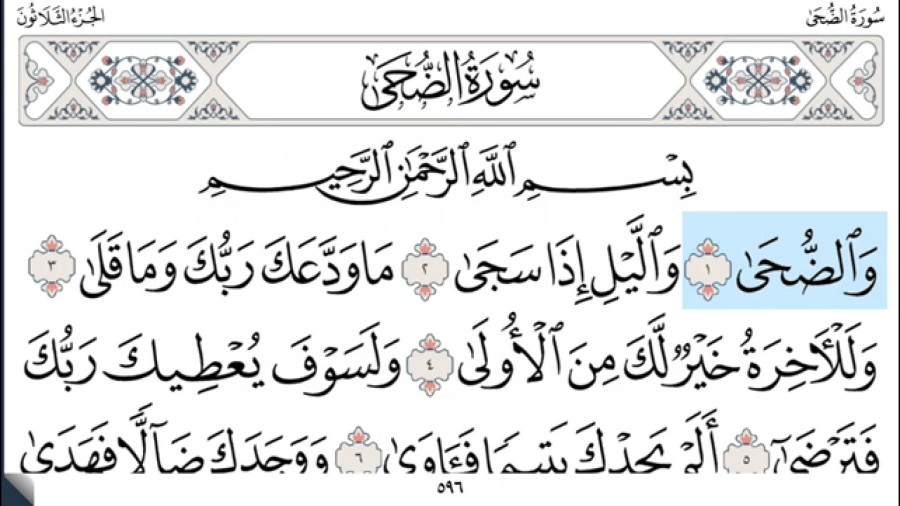 سُورَةُ الضُّحَىٰ
الجُزْءُ الثَّلَاثُونَ
سُورَةُ الضُّحَىٰ
بِسْمِ ٱللَّهِ ٱلرَّحْمَٰنِ ٱلرَّحِيمِ
وَٱلضُّحَىٰ ١ وَٱلَّيْلِ إِذَا سَجَىٰ ٢ مَا وَدَّعَكَ رَبُّكَ وَمَا قَلَىٰ ٣
وَلَلْأٓخِرَةُ خَيْرٌ لَّكَ مِنَ ٱلْأُولَىٰ ٤ وَلَسَوْفَ يُعْطِيكَ رَبُّكَ
فَتَرْضَىٰٓ ٥ أَلَمْ يَجِدْكَ يَتِيمًا فَـَٔاوَىٰ ٦ وَوَجَدَكَ ضَآلًّا فَهَدَىٰ
٥٩٦